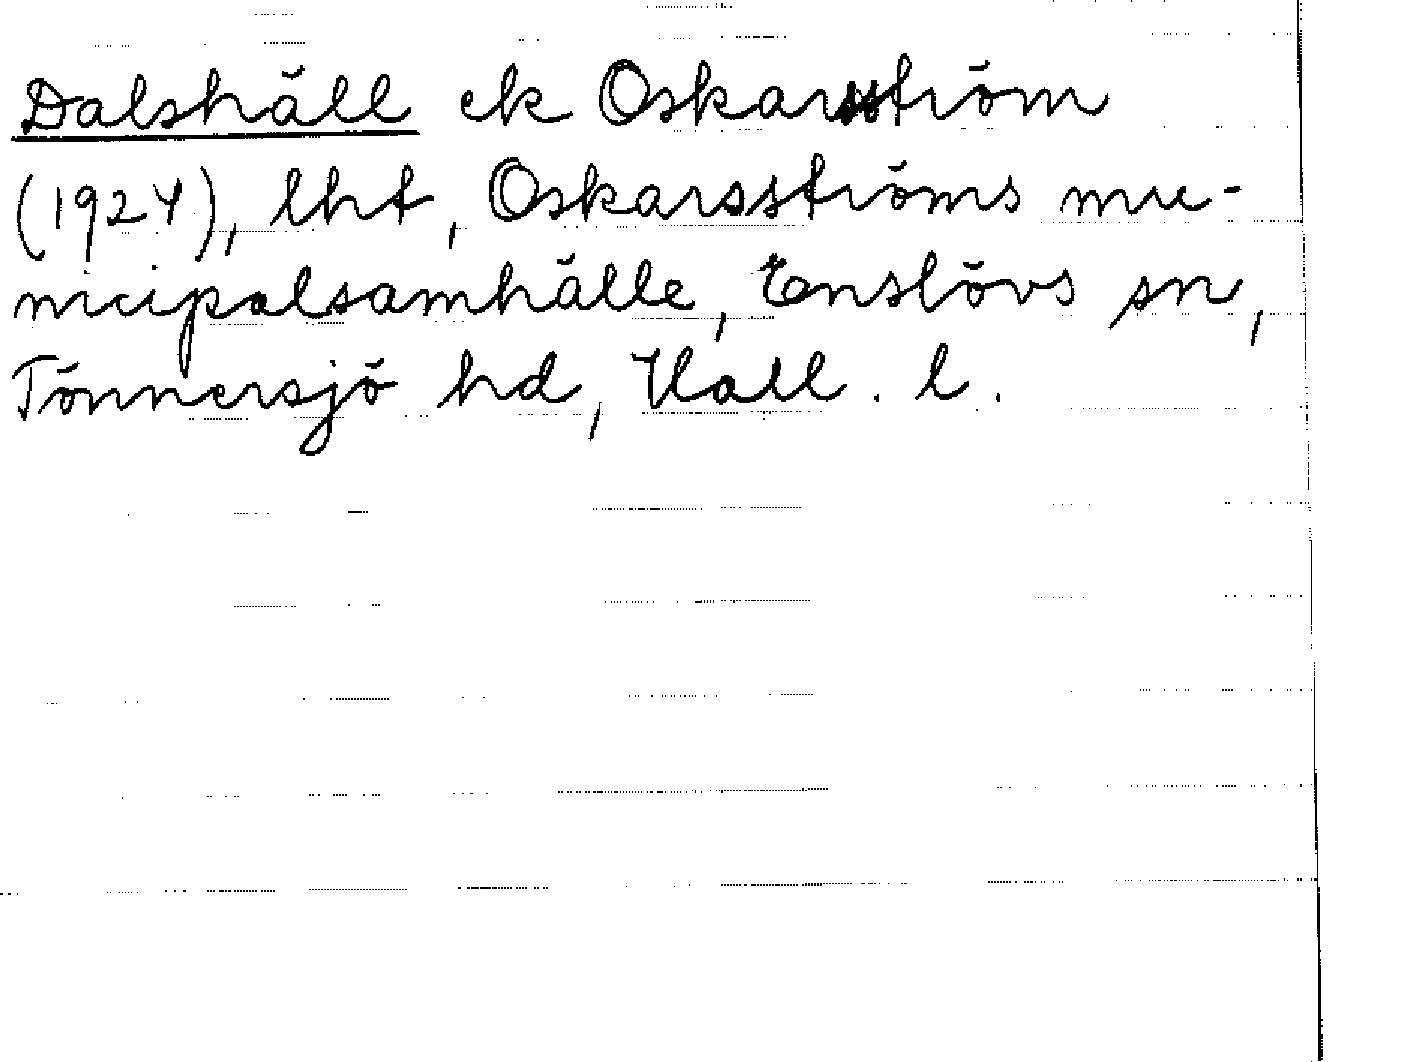 Dalshäll ek Oskarsström
(1924), lht, Oskarsströms mu-
nicipalsamhälle, Enslövs sn,
Tönnersjö hd, Hall. l.